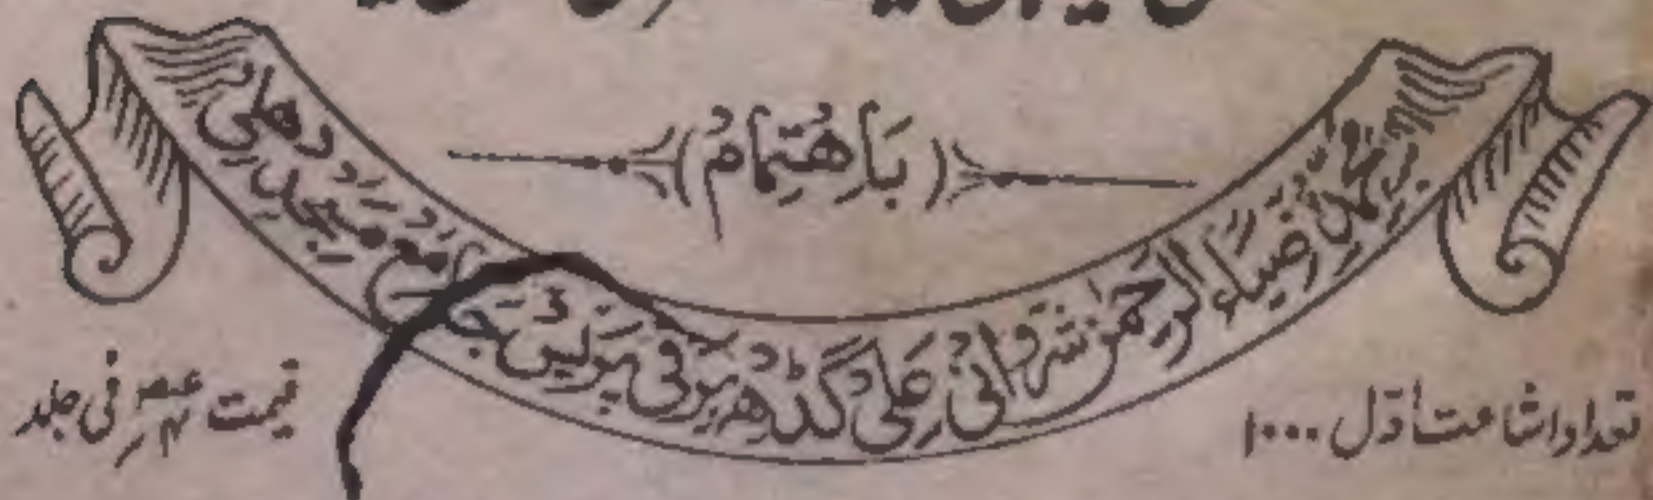 (بَاِهُتِمَامُ)
محمد ضیاء الرحمن شروانی علی گڈھ برقی پریس جامع مسجد دہلی
تعداد اشاعت اوّل ۱۰۰۰
قیمت فی جلد